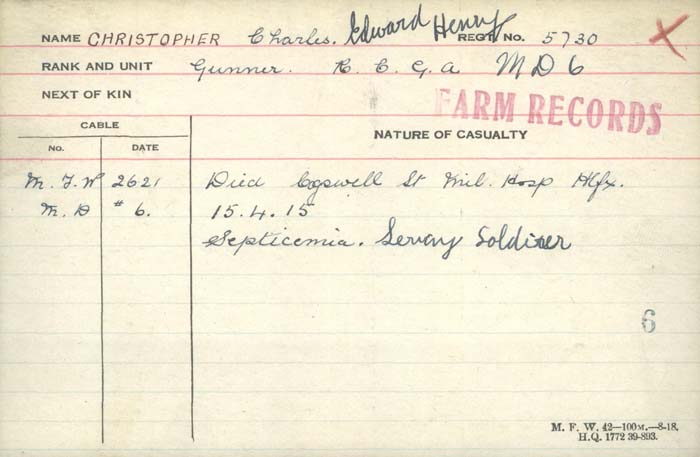 NAME CHRISTOPHER Charles. Edward Henry REGT'L No. 5730
RANK AND UNIT Gunner. R. C. G. A MD6
NEXT OF KIN
FARM RECORDS
CABLE
NATURE OF CASUALTY
No. DATE
M. F. W 2621 Died Cogswell St Mil. Hosp Hlfx.
M. D # 6. 15.4.15
Septicemia. Servng Soldier
6
M. F. W. 42—100M.—8-18.
H.Q. 1772 39-893.